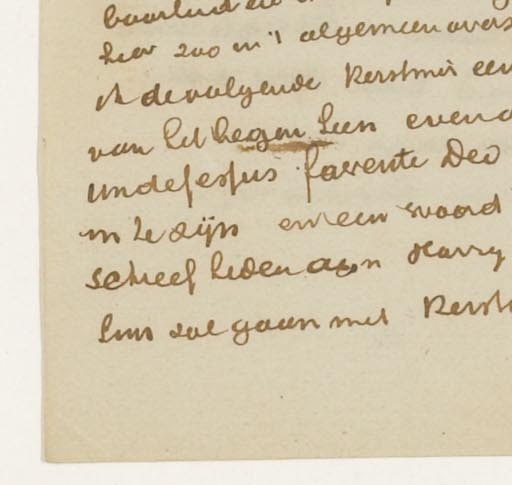 hier zoo in 't algemeen overs
ik de volgende Kerstmis een
van het begin
undefessus favente Deo
in te zijn en een woord
schreef heden aan Harry
zal gaan met Kerst